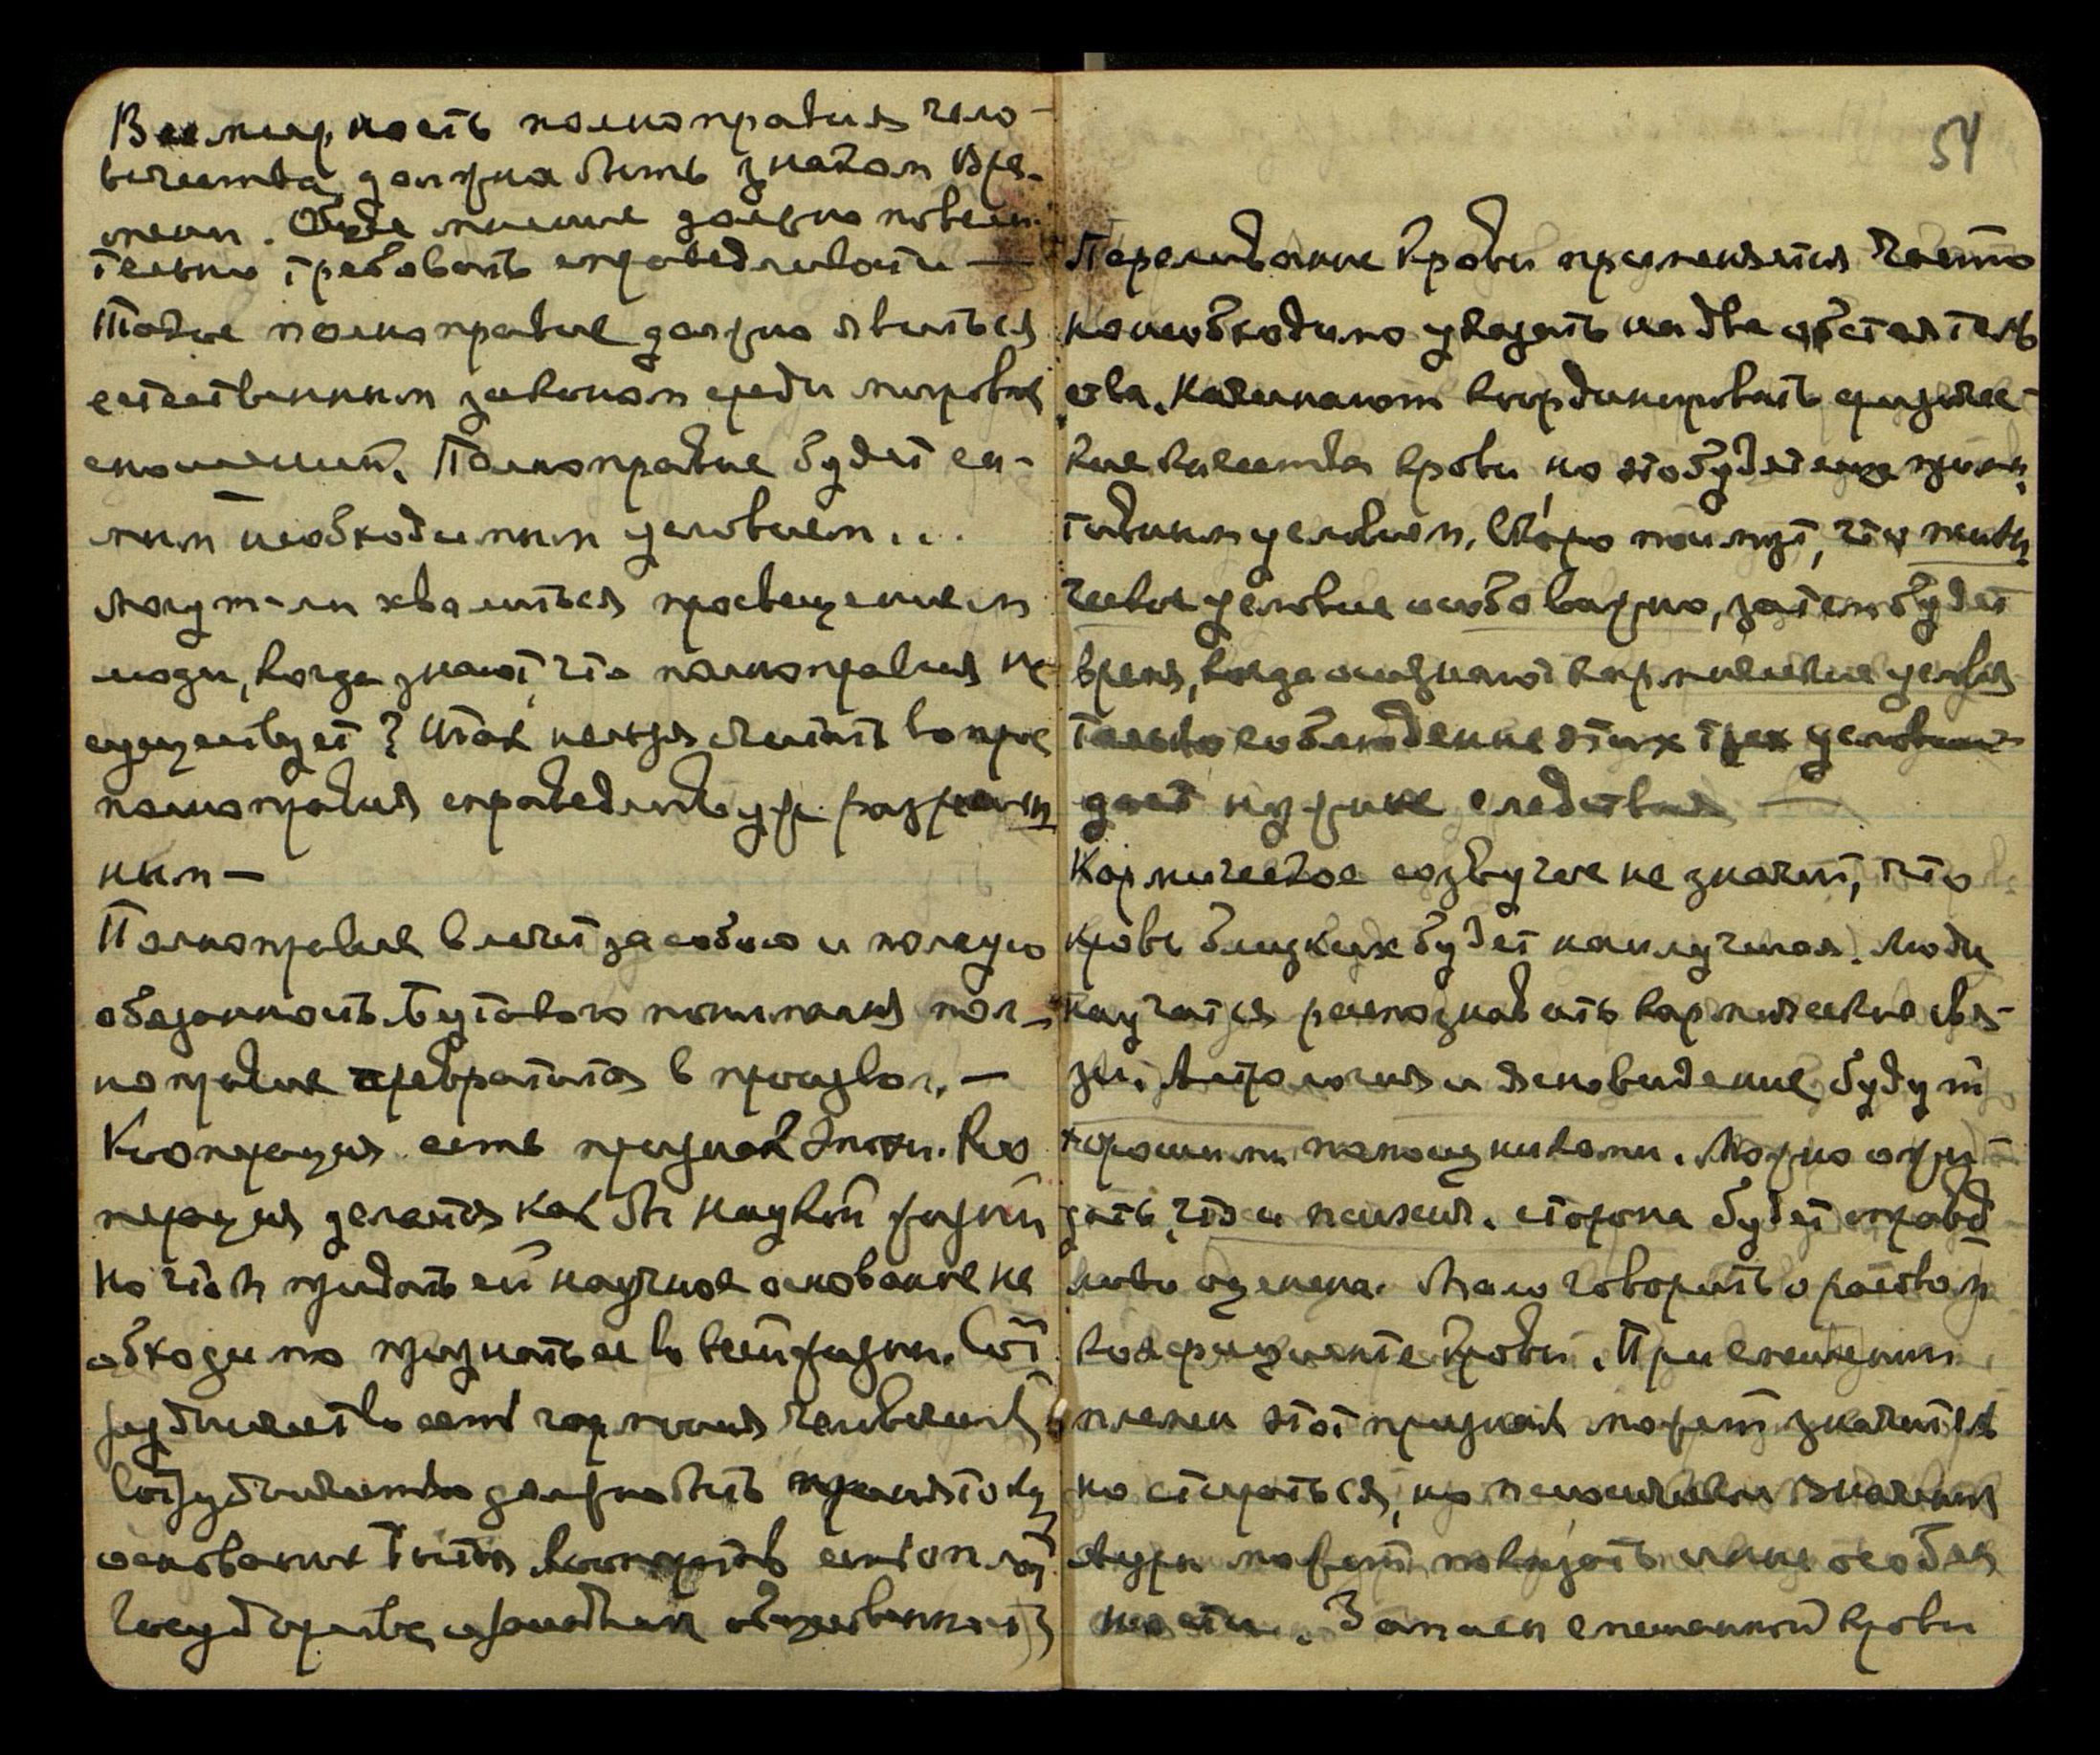 Всемирность полноправия чело-
вечества должна быть знаком Вре-
мени. Общее мнение должно повели-
тельно требовать справедливости —
Такое полноправие должно явиться
естественным законом среди мировых
сношений. Полноправие будет са-
мым необходимым условием...
Могут-ли хвалиться просвещением
люди, когда знают, что полноправия не
существует? Итак нельзя считать вопрос
полноправия справедливо уже разрешен
ным —
Полноправие влечет за собою и полную
обязанность. Без такого понимания пол-
ноправие превратится в произвол. —
Кооперация есть признак Эпохи. Коо
перация делается как бы наукой жизни
Но чтобы придать ей научное основание не
обходимо признать ее во всей жизни. Сот
рудничество есть гармония человечест
Сотрудничество должно быть принято в
основание бытия. есть оплот
Государства, общественность
54
Переливание крови применяется часто
но необходимо указать на два обстоятель
ства. Начинают координировать физичес-
кие качества крови но это будет еще прими
тивным условием. Скоро поймут, что психи
ческое условие особо важно, затем будет
время, когда осознают кармические условия
Только соблюдение этих трех условий
дает нужные следствия —
Кармическое созвучие не значит, что
кровь близких будет наилучшая. Люди
научатся распознавать кармические свя-
зи. Астрология и ясновидение будут
хорошими помощниками. Можно ожи-
дать, что и психич. сторона будет справед
ливо оценена. Мало говорить о расовом
коэффициенте крови. При смешении
племен этот признак может значитель
но стираться, но психические значения
Ауры может показать иные особен
ности. Замен смешанной крови